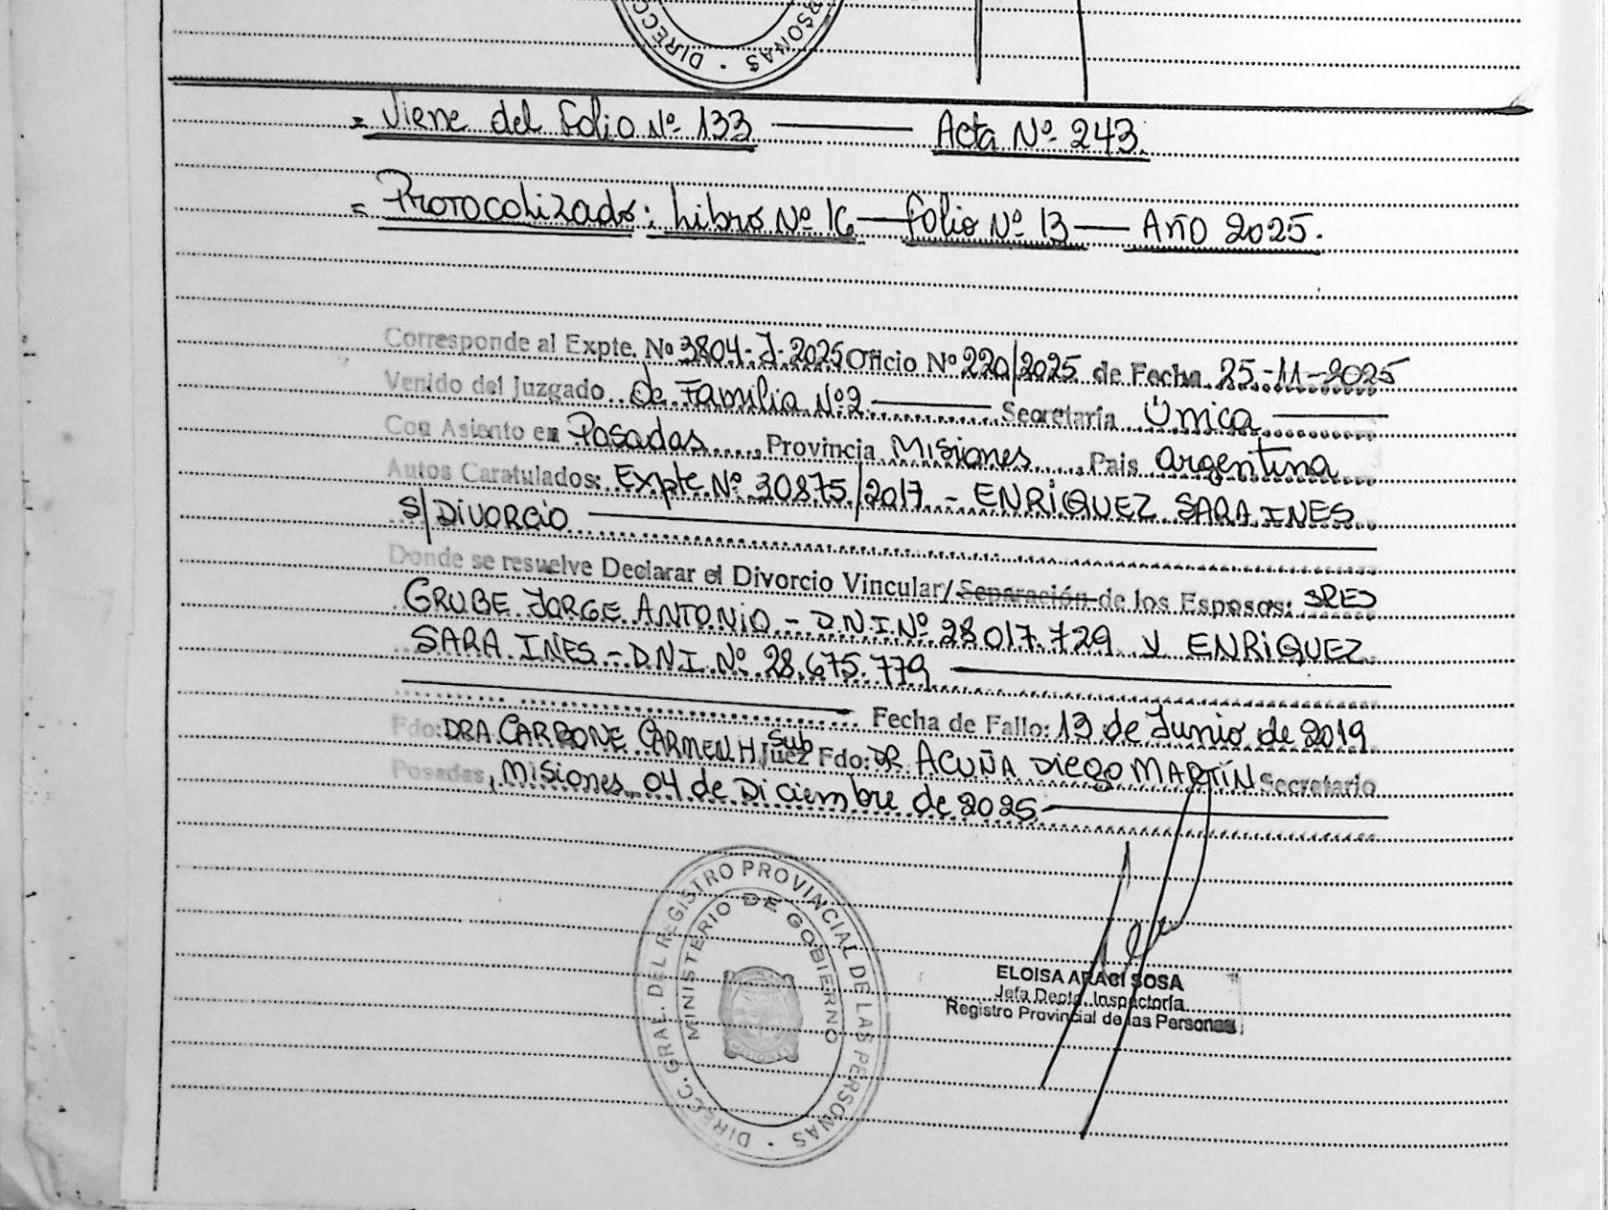 DIRECC
RSONAS
= Viene del folio Nº 133 — Acta Nº 243.
= Protocolizado: Libro Nº 16 — folio Nº 13 — Año 2025.
Corresponde al Expte. Nº 3804-J-2025 Oficio Nº 220/2025 de Fecha 25-11-2025
Venido del Juzgado de Familia Nº2 — Secretaría Única —
Con Asiento en Posadas, Provincia Misiones, Pais Argentina
Autos Caratulados: Expte. Nº 30875/2017 - ENRIQUEZ SARA INES
S/DIVORCIO —
Donde se resuelve Declarar el Divorcio Vincular/Separación de los Esposos: SRES
GRUBE JORGE ANTONIO - D.N.I. Nº 28.017.729 Y ENRIQUEZ
SARA INES - D.N.I. Nº 28.675.779 —
Fecha de Fallo: 13 de Junio de 2019
Fdo: DRA CARBONE CARMEN H Sub Juez Fdo: DR ACUÑA Diego MARTÍN Secretario
Posadas, Misiones, 04 de Diciembre de 2025 —
DIRECC. GRAL. DEL REGISTRO PROVINCIAL DE LAS PERSONAS
MINISTERIO DE GOBIERNO
ELOISA ARACI SOSA
Jefa Depto. Inspectoría
Registro Provincial de las Personas